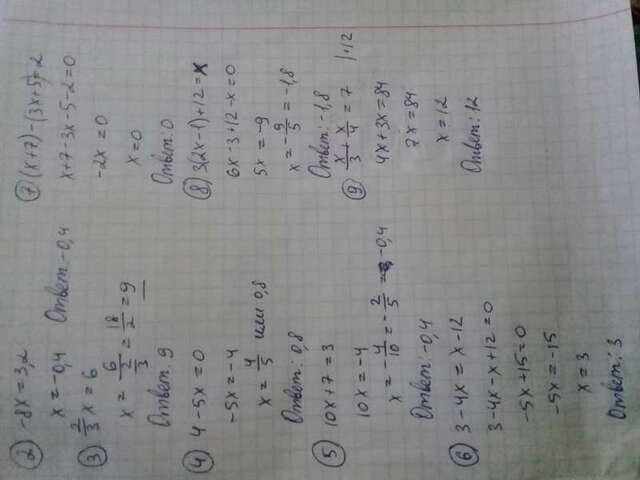 2) -8x = 3,2
x = -0,4 Ответ -0,4
3) 2/3 x = 6
x = 6/(2/3) = 18/2 = 9
Ответ 9
4) 4 - 5x = 0
-5x = -4
x = 4/5 или 0,8
Ответ: 0,8
5) 10x + 7 = 3
10x = -4
x = -4/10 = -2/5 = -0,4
Ответ: -0,4
6) 3 - 4x = x - 12
3 - 4x - x + 12 = 0
-5x + 15 = 0
-5x = -15
x = 3
Ответ: 3
7) (x+7) - (3x+5) = 2
x + 7 - 3x - 5 - 2 = 0
-2x = 0
x = 0
Ответ: 0
8) 3(2x-1) + 12 = x
6x - 3 + 12 - x = 0
5x = -9
x = -9/5 = -1,8
Ответ: -1,8
9) x/3 + x/4 = 7 |·12
4x + 3x = 84
7x = 84
x = 12
Ответ: 12